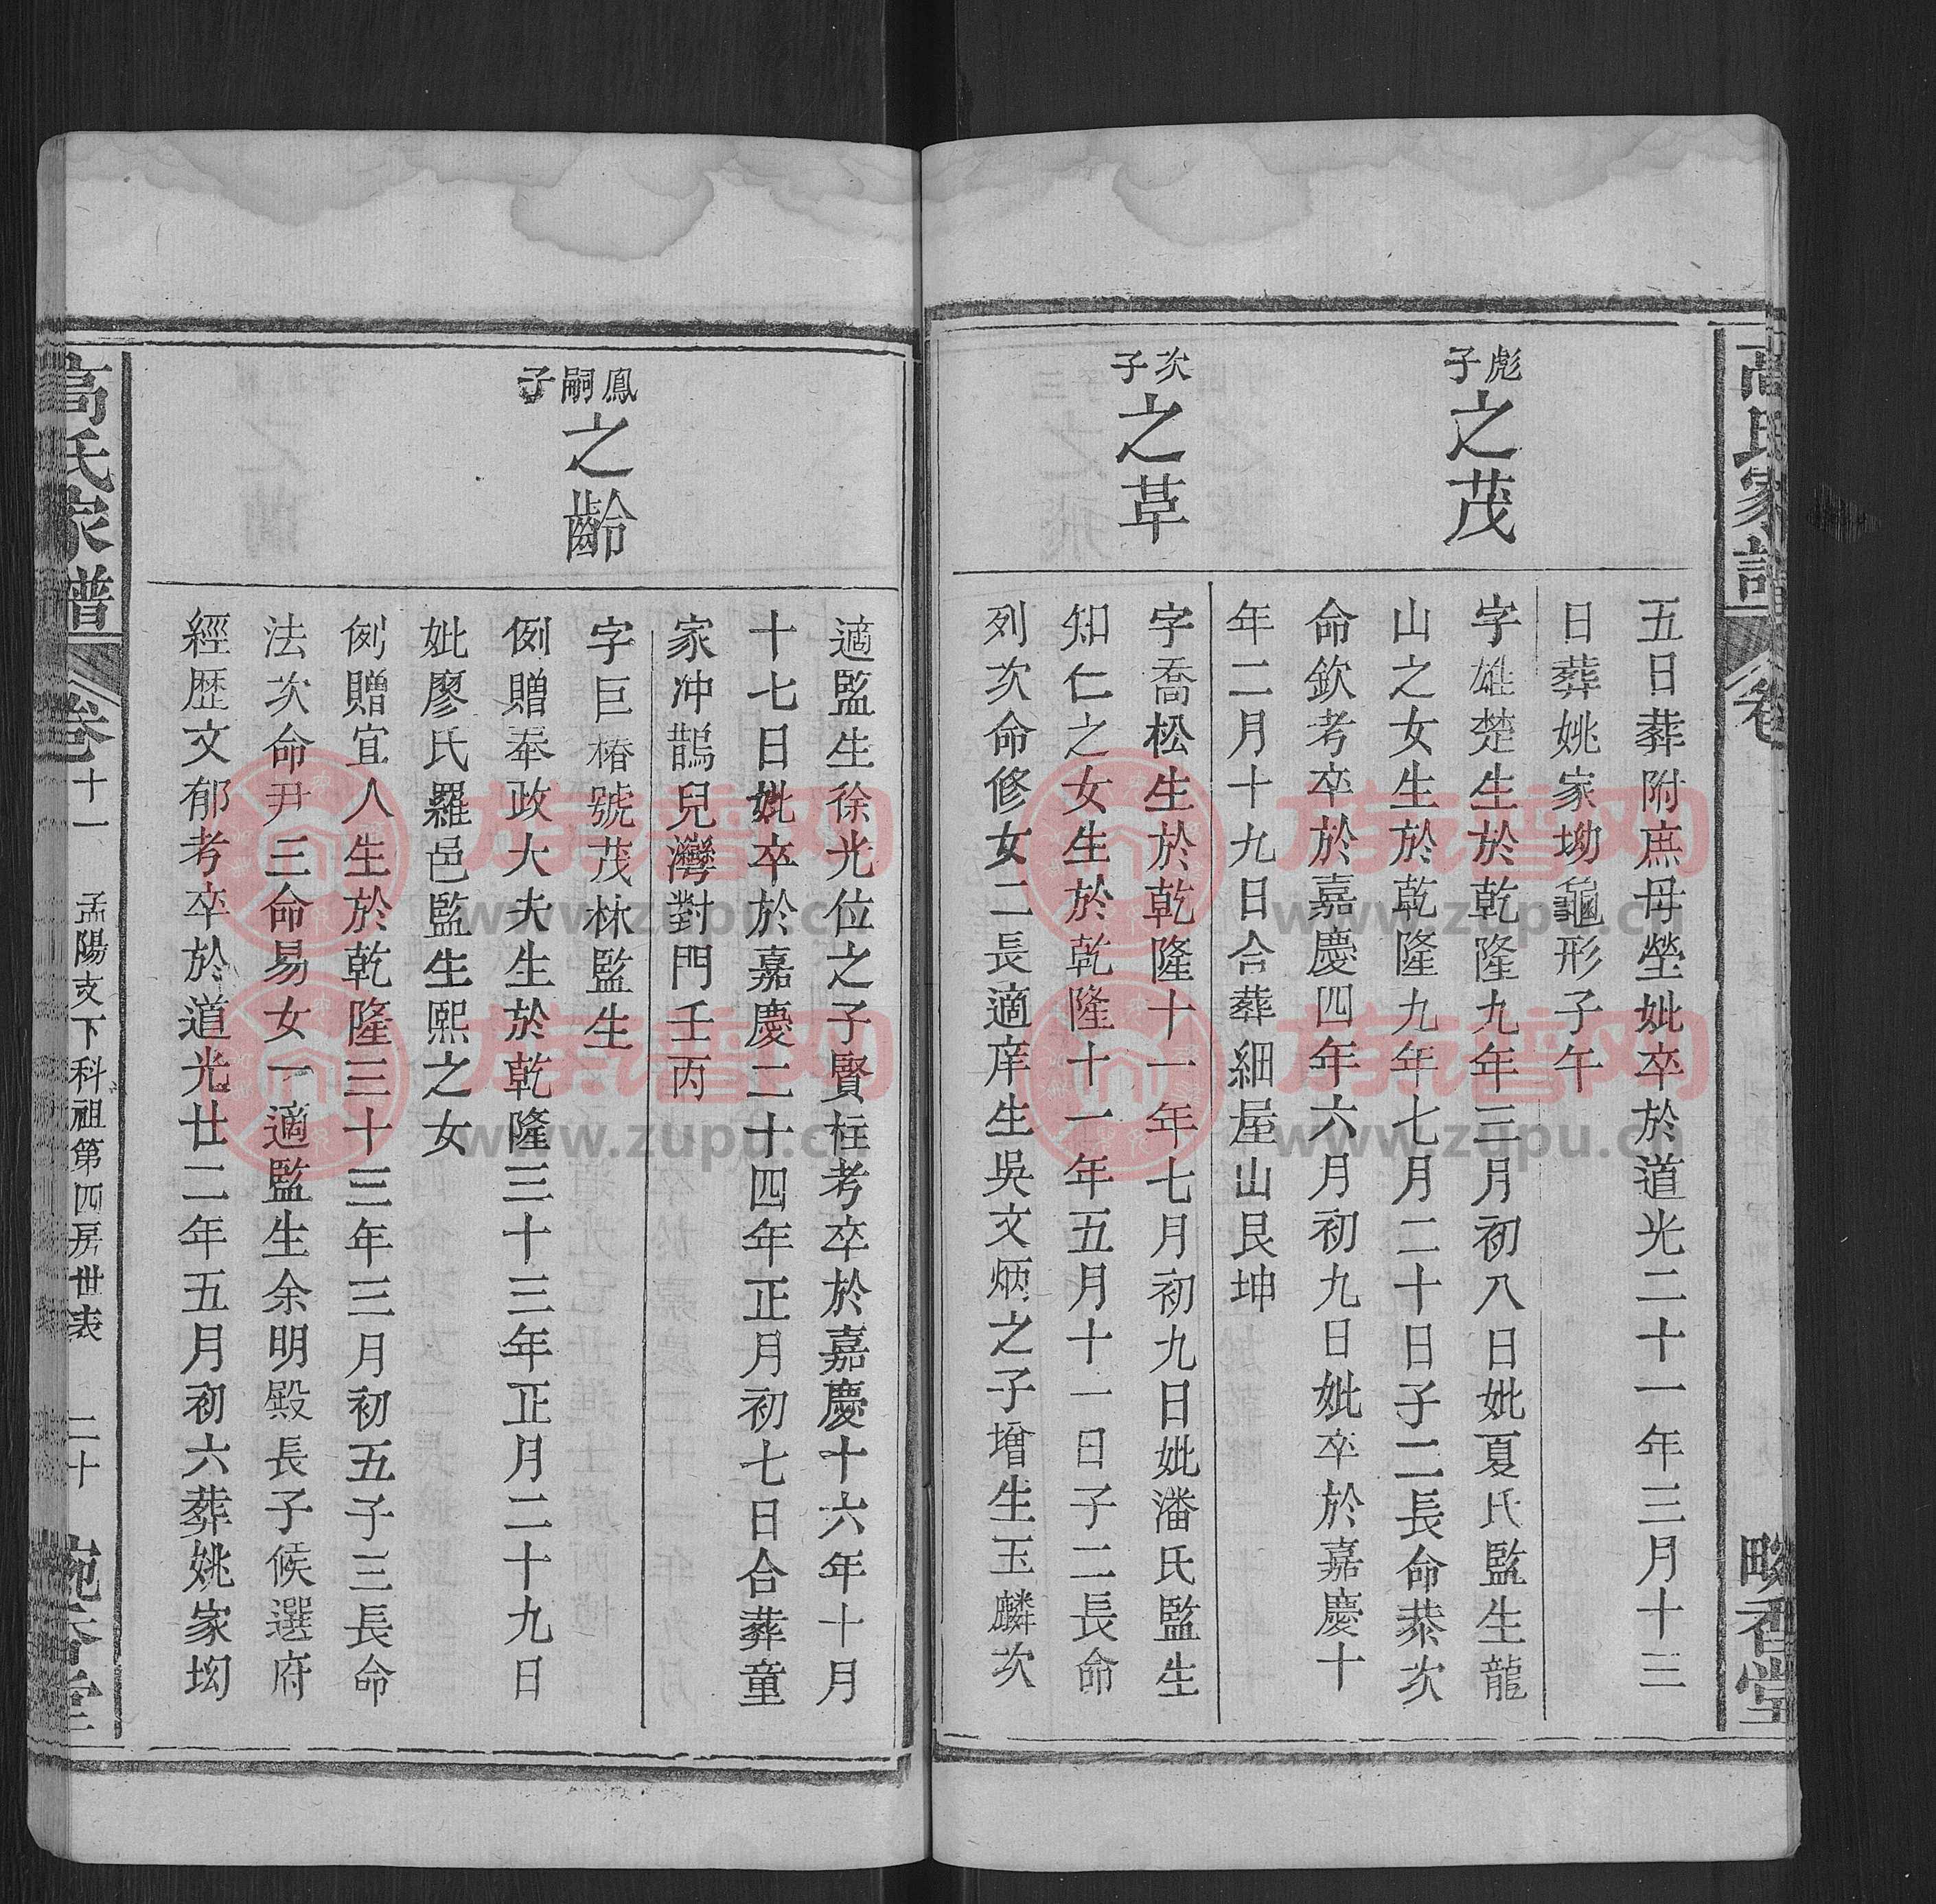 高氏家譜
卷
畹香堂
五日葬附庶母塋妣卒於道光二十一年三月十三
日葬姚家坳龜形子午
彪子
之茂
字雄楚生於乾隆九年三月初八日妣夏氏監生龍
山之女生於乾隆九年七月二十日子二長命恭次
命欽考卒於嘉慶四年六月初九日妣卒於嘉慶十
年二月十九日合葬細屋山艮坤
次子
之草
字喬松生於乾隆十一年七月初九日妣潘氏監生
知仁之女生於乾隆十一年五月十一日子二長命
列次命修女二長適庠生吳文炳之子增生玉麟次
適監生徐光位之子賢柱考卒於嘉慶十六年十月
十七日妣卒於嘉慶二十四年正月初七日合葬童
家冲鵲兒灣對門壬丙
鳳嗣子
之齡
字巨椿號茂林監生
例贈奉政大夫生於乾隆三十三年正月二十九日
妣廖氏羅邑監生熙之女
例贈宜人生於乾隆三十三年三月初五子三長命
法次命尹三命易女一適監生余明殿長子候選府
經歷文郁考卒於道光廿二年五月初六葬姚家坳
高氏家譜
卷十一
孟陽支下科祖第四房世表
二十
畹香堂
族谱网
www.zupu.cn
族谱网
www.zupu.cn
族谱网
www.zupu.cn
族谱网
www.zupu.cn